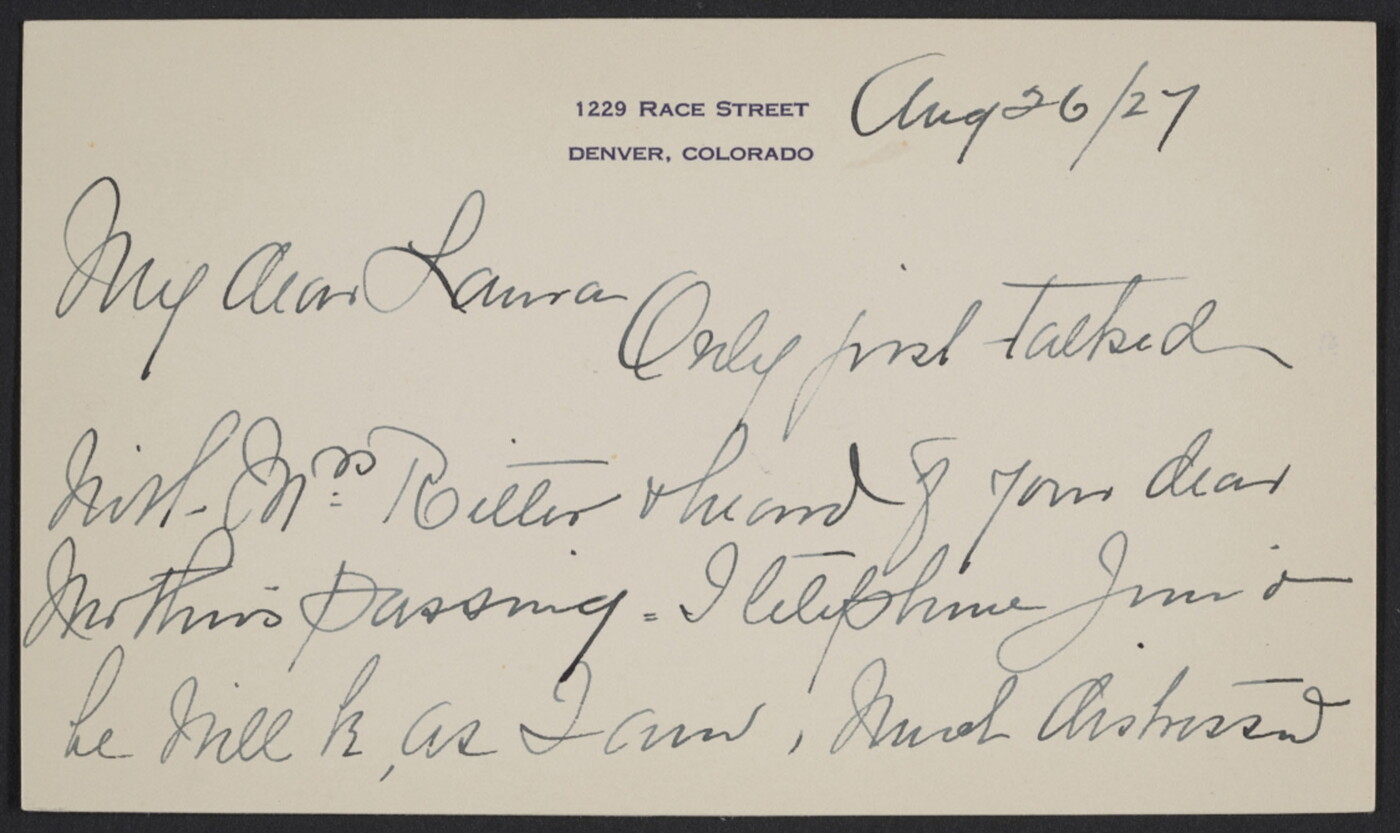 1229 RACE STREET
DENVER, COLORADO
Aug 26/27
My dear Laura
Only just talked
with Mrs Ritter & heard of your dear
Mother's passing = I telephone Jim &
he will be, as I am, much distressed